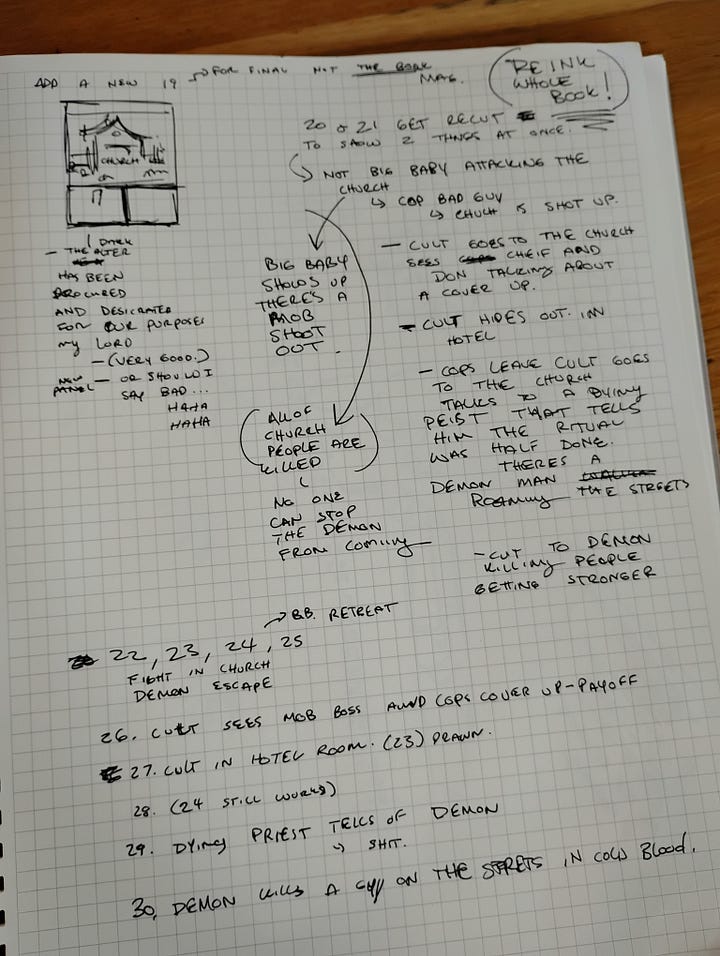 ADD A NEW 19 → FOR FINAL NOT THE BOOK
MAG.
REINK
WHOLE
BOOK!
CHURCH
DARK
- THE ALTER
HAS BEEN
PROCURED
AND DESICRATED
FOR OUR PURPOSES
MY LORD
- (VERY GOOD.)
NEW PANEL - OR SHOULD I
SAY BAD...
HAHA
HAHA
20 & 21 GET RECUT
TO SHOW 2 THINGS AT ONCE.
NOT BIG BABY ATTACKING THE
CHURCH
COP BAD GUY
CHUCH IS SHOT UP.
BIG BABY
SHOWS UP
THERE'S A
MOB
SHOOT
OUT.
ALL OF
CHURCH
PEOPLE ARE
KILLED
NO ONE
CAN STOP
THE DEMON
FROM COMING
- CULT GOES TO THE CHURCH
SEES CHEIF AND
DON TALKING ABOUT
A COVER UP.
- CULT HIDES OUT. INN
HOTEL
- COPS LEAVE CULT GOES
TO THE CHURCH
TALKS TO A DYING
PEIST THAT TELLS
HIM THE RITUAL
WAS HALF DONE.
THERES A
DEMON MAN
ROAMING THE STREETS
- CUT TO DEMON
KILLING PEOPLE
GETTING STRONGER
→ B.B. RETREAT
22, 23, 24, 25
FIGHT IN CHURCH
DEMON ESCAPE
26. CULT SEES MOB BOSS AND COPS COVER UP - PAYOFF
27. CULT IN HOTEL ROOM. (23) DRAWN.
28. (24 STILL WORKS)
29. DYING PRIEST TELLS OF DEMON
SHIT.
30. DEMON KILLS A GUY ON THE STREETS IN COLD BLOOD.